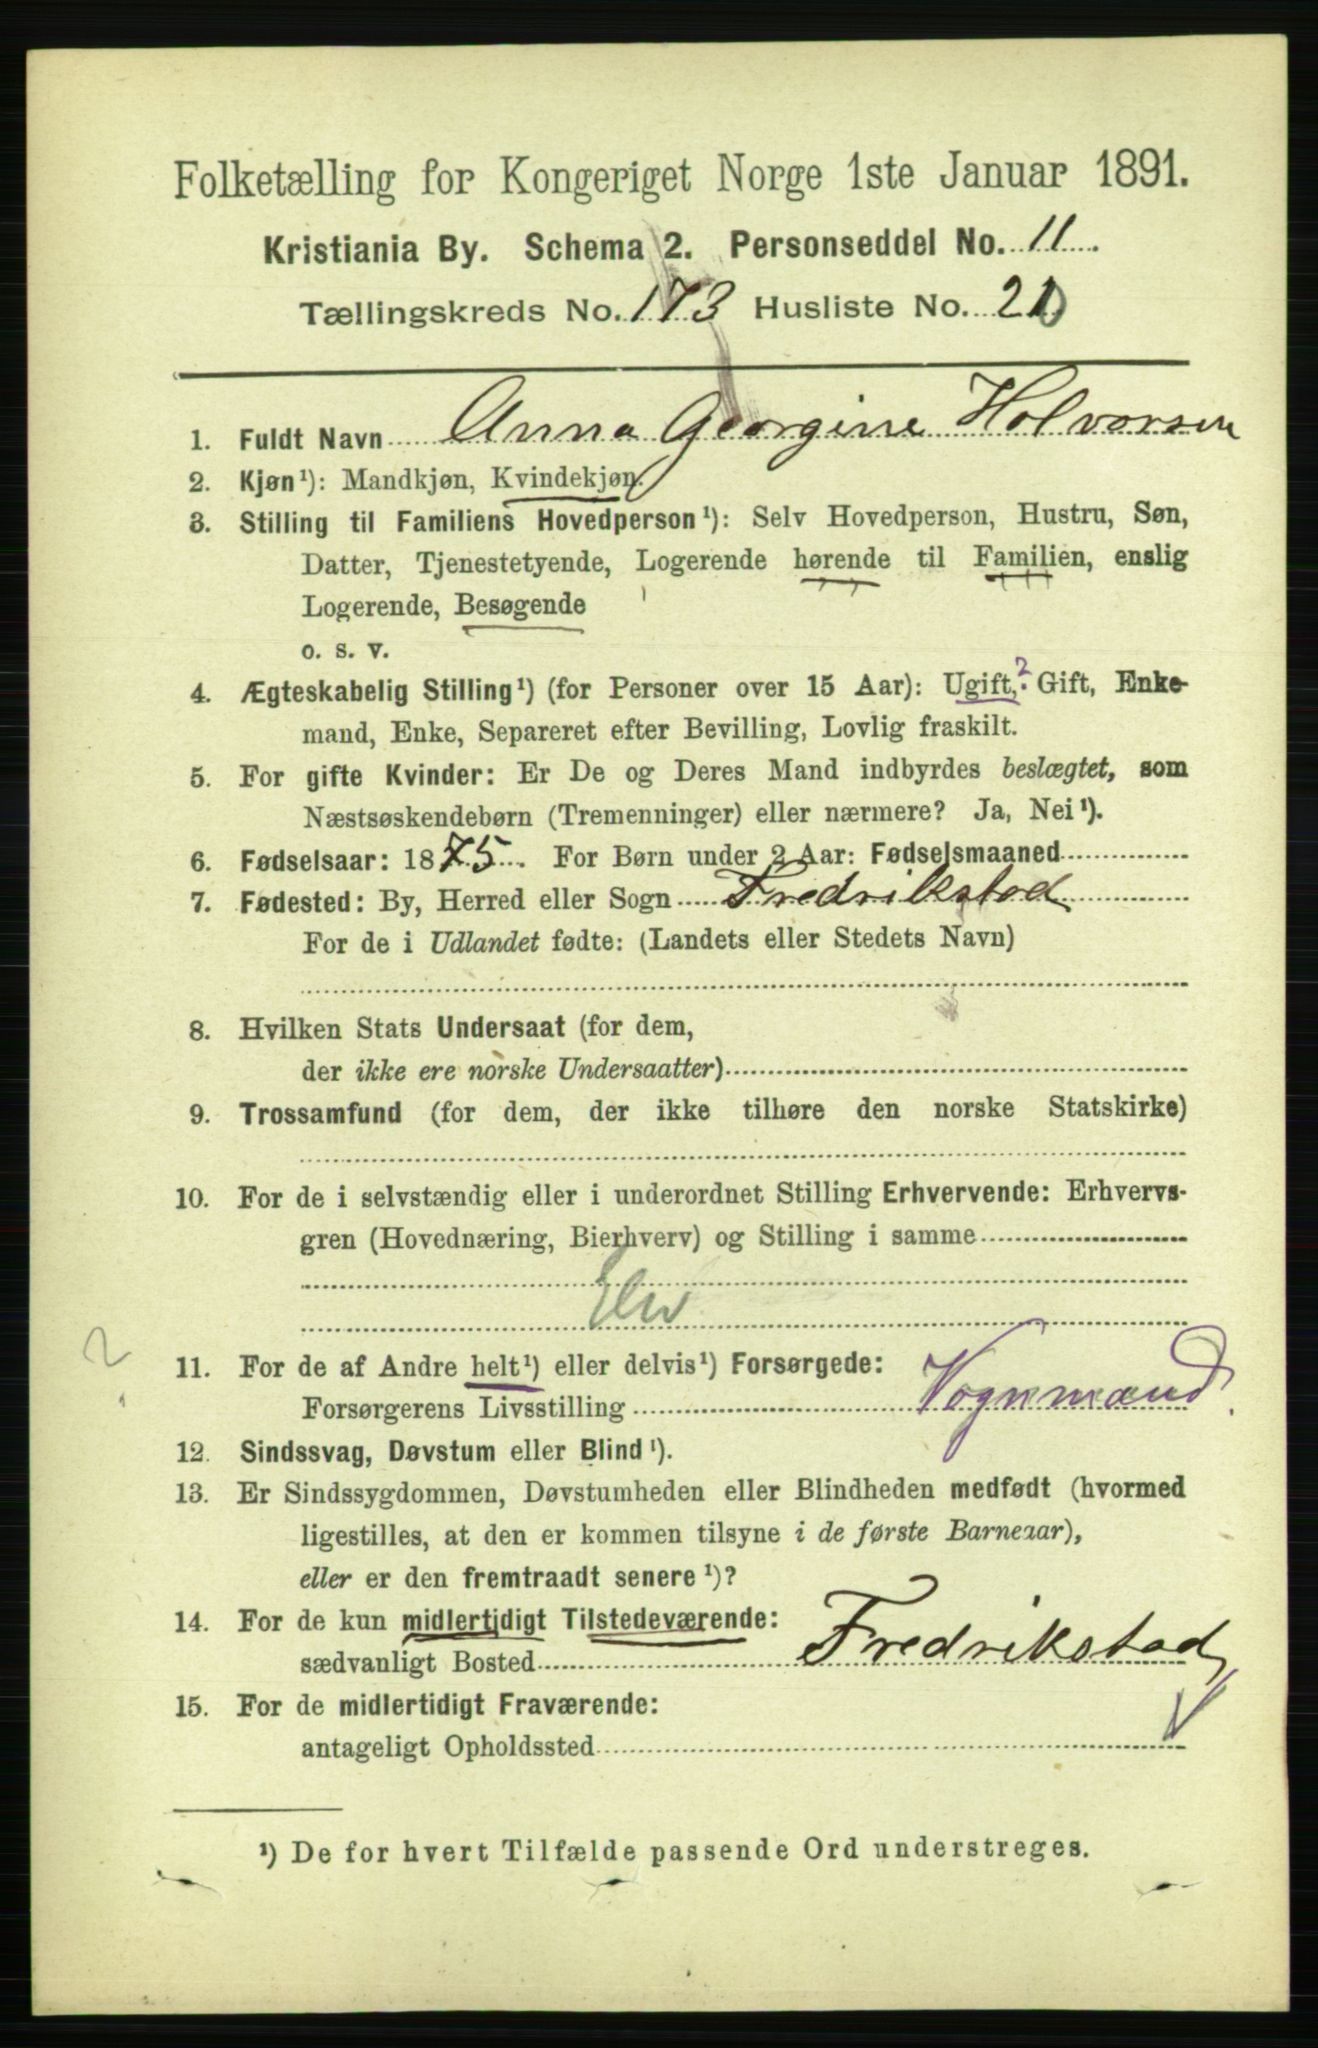 Folketælling for Kongeriget Norge 1ste Januar 1891.
Kristiania By. Schema 2. Personseddel No. 11
Tællingskreds No. 173 Husliste No. 20
1. Fuldt Navn Anna Georgine Holvorsen
2. Kjøn ¹): Mandkjøn, Kvindekjøn.
3. Stilling til Familiens Hovedperson ¹): Selv Hovedperson, Hustru, Søn,
Datter, Tjenestetyende, Logerende hørende til Familien, enslig
Logerende, Besøgende
o. s. v.
4. Ægteskabelig Stilling ¹) (for Personer over 15 Aar): Ugift, ? Gift, Enke-
mand, Enke, Separeret efter Bevilling, Lovlig fraskilt.
5. For gifte Kvinder: Er De og Deres Mand indbyrdes beslægtet, som
Næstsøskendebørn (Tremenninger) eller nærmere? Ja, Nei ¹).
6. Fødselsaar: 1875. For Børn under 2 Aar: Fødselsmaaned
7. Fødested: By, Herred eller Sogn Fredrikstad
For de i Udlandet fødte: (Landets eller Stedets Navn)
8. Hvilken Stats Undersaat (for dem,
der ikke ere norske Undersaatter)
9. Trossamfund (for dem, der ikke tilhøre den norske Statskirke)
10. For de i selvstændig eller i underordnet Stilling Erhvervende: Erhvervs-
gren (Hovednæring, Bierhverv) og Stilling i samme
Elev
2
11. For de af Andre helt ¹) eller delvis ¹) Forsørgede:
Forsørgerens Livsstilling Vognmand.
12. Sindssvag, Døvstum eller Blind ¹).
13. Er Sindssygdommen, Døvstumheden eller Blindheden medfødt (hvormed
ligestilles, at den er kommen tilsyne i de første Barneaar),
eller er den fremtraadt senere ¹)?
14. For de kun midlertidigt Tilstedeværende:
sædvanligt Bosted Fredrikstad
15. For de midlertidigt Fraværende:
antageligt Opholdssted
¹) De for hvert Tilfælde passende Ord understreges.